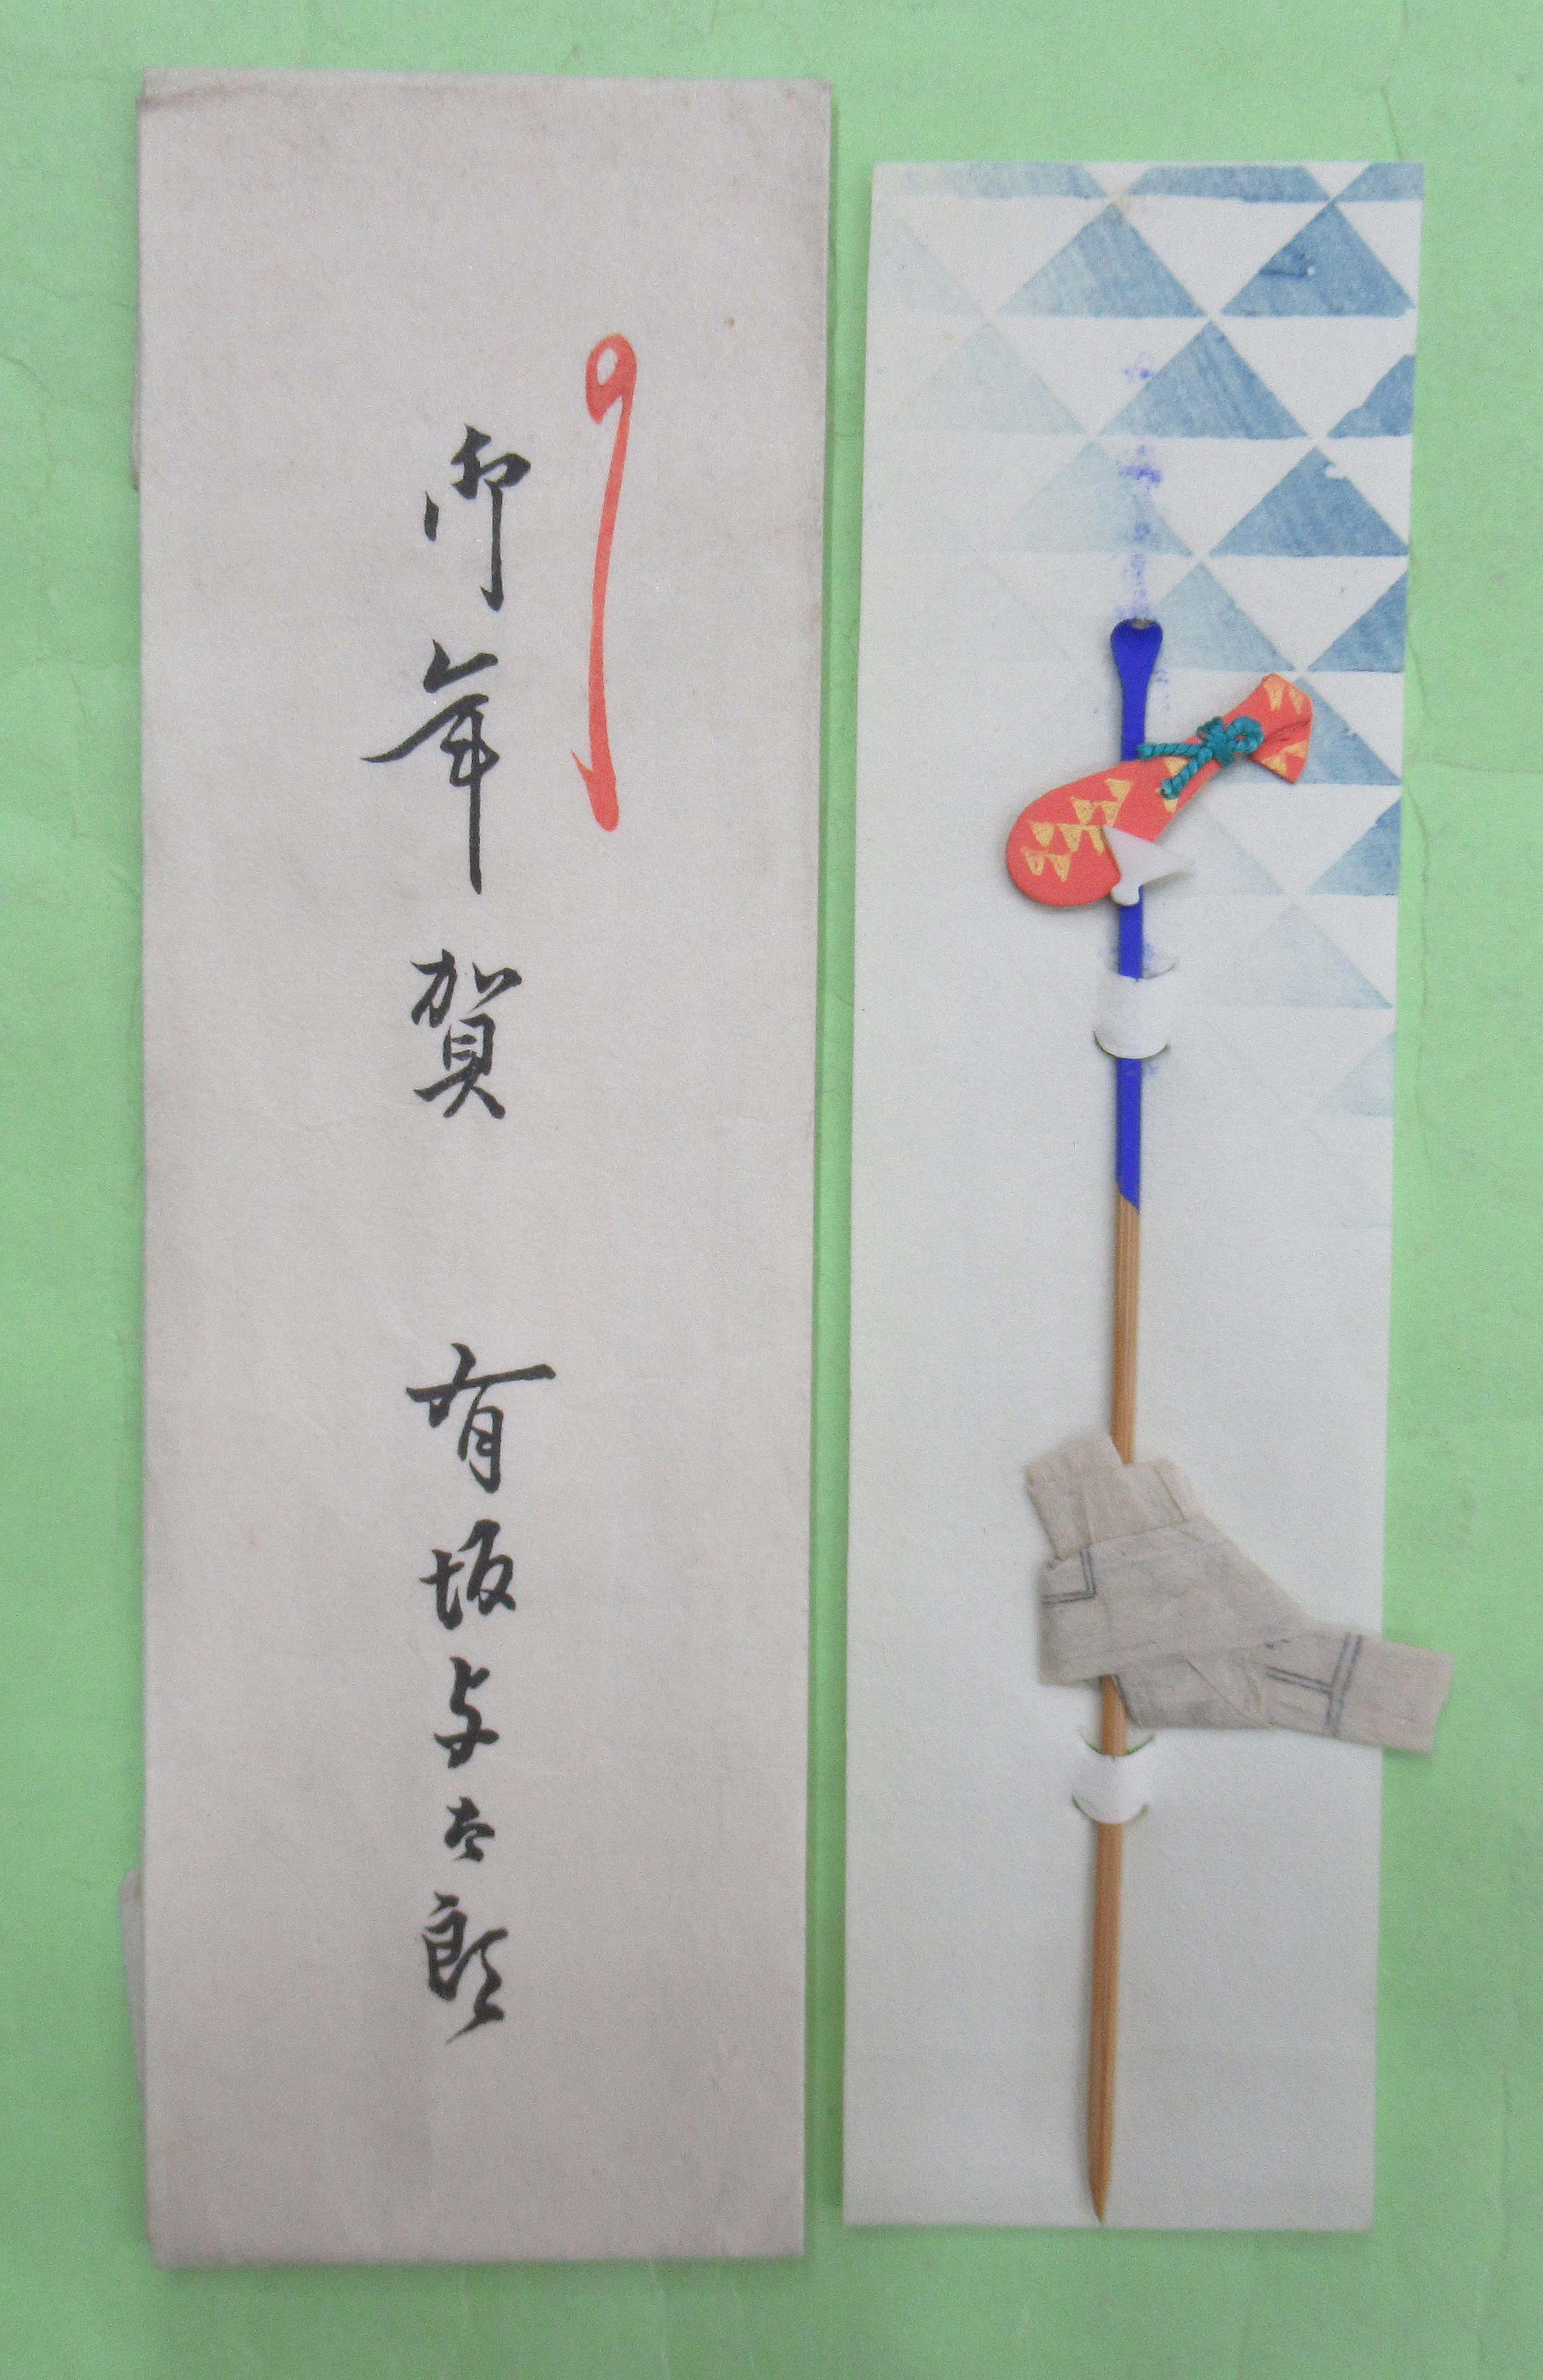 御年賀
有坂与太郎